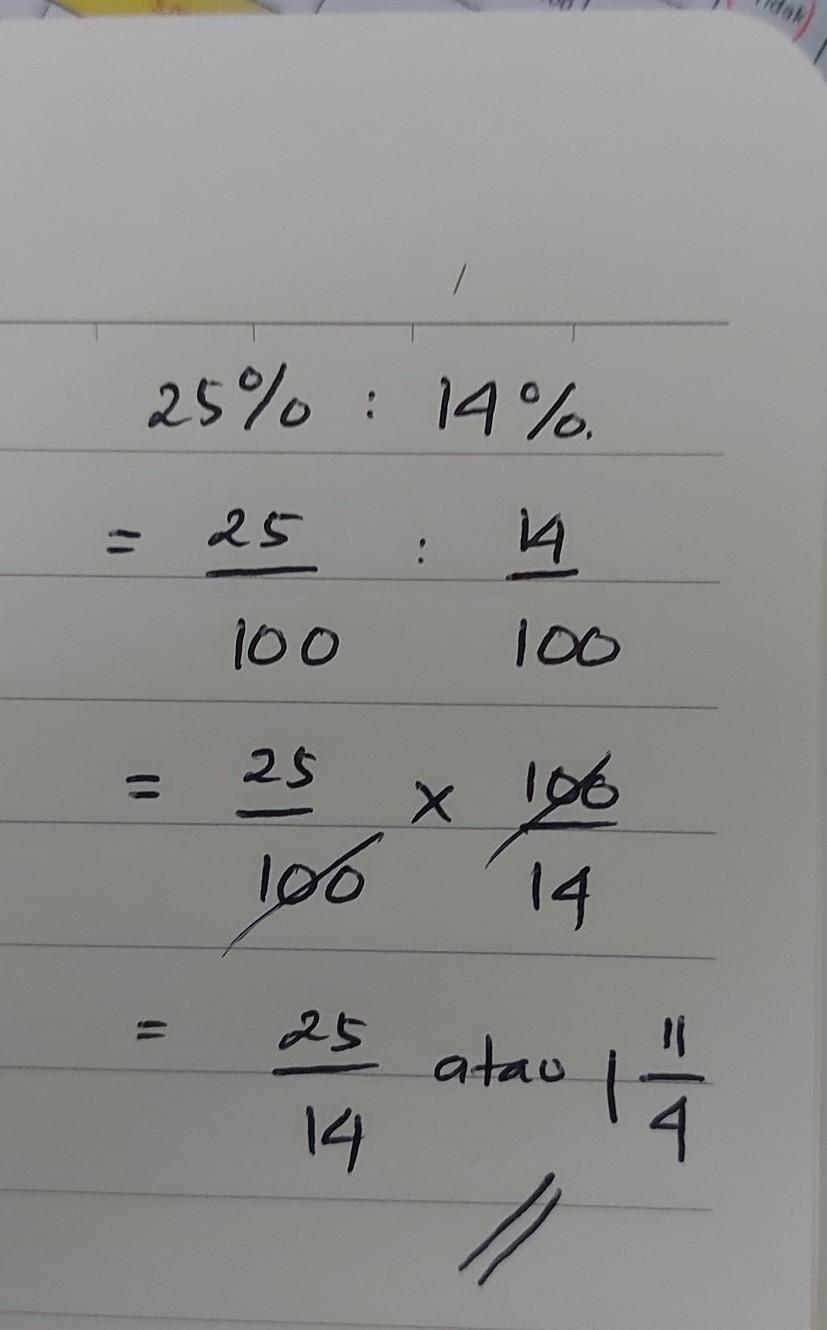 idak)
25% : 14%.
= 25/100 : 14/100
= 25/100 x 100/14
= 25/14 atau 1 11/4